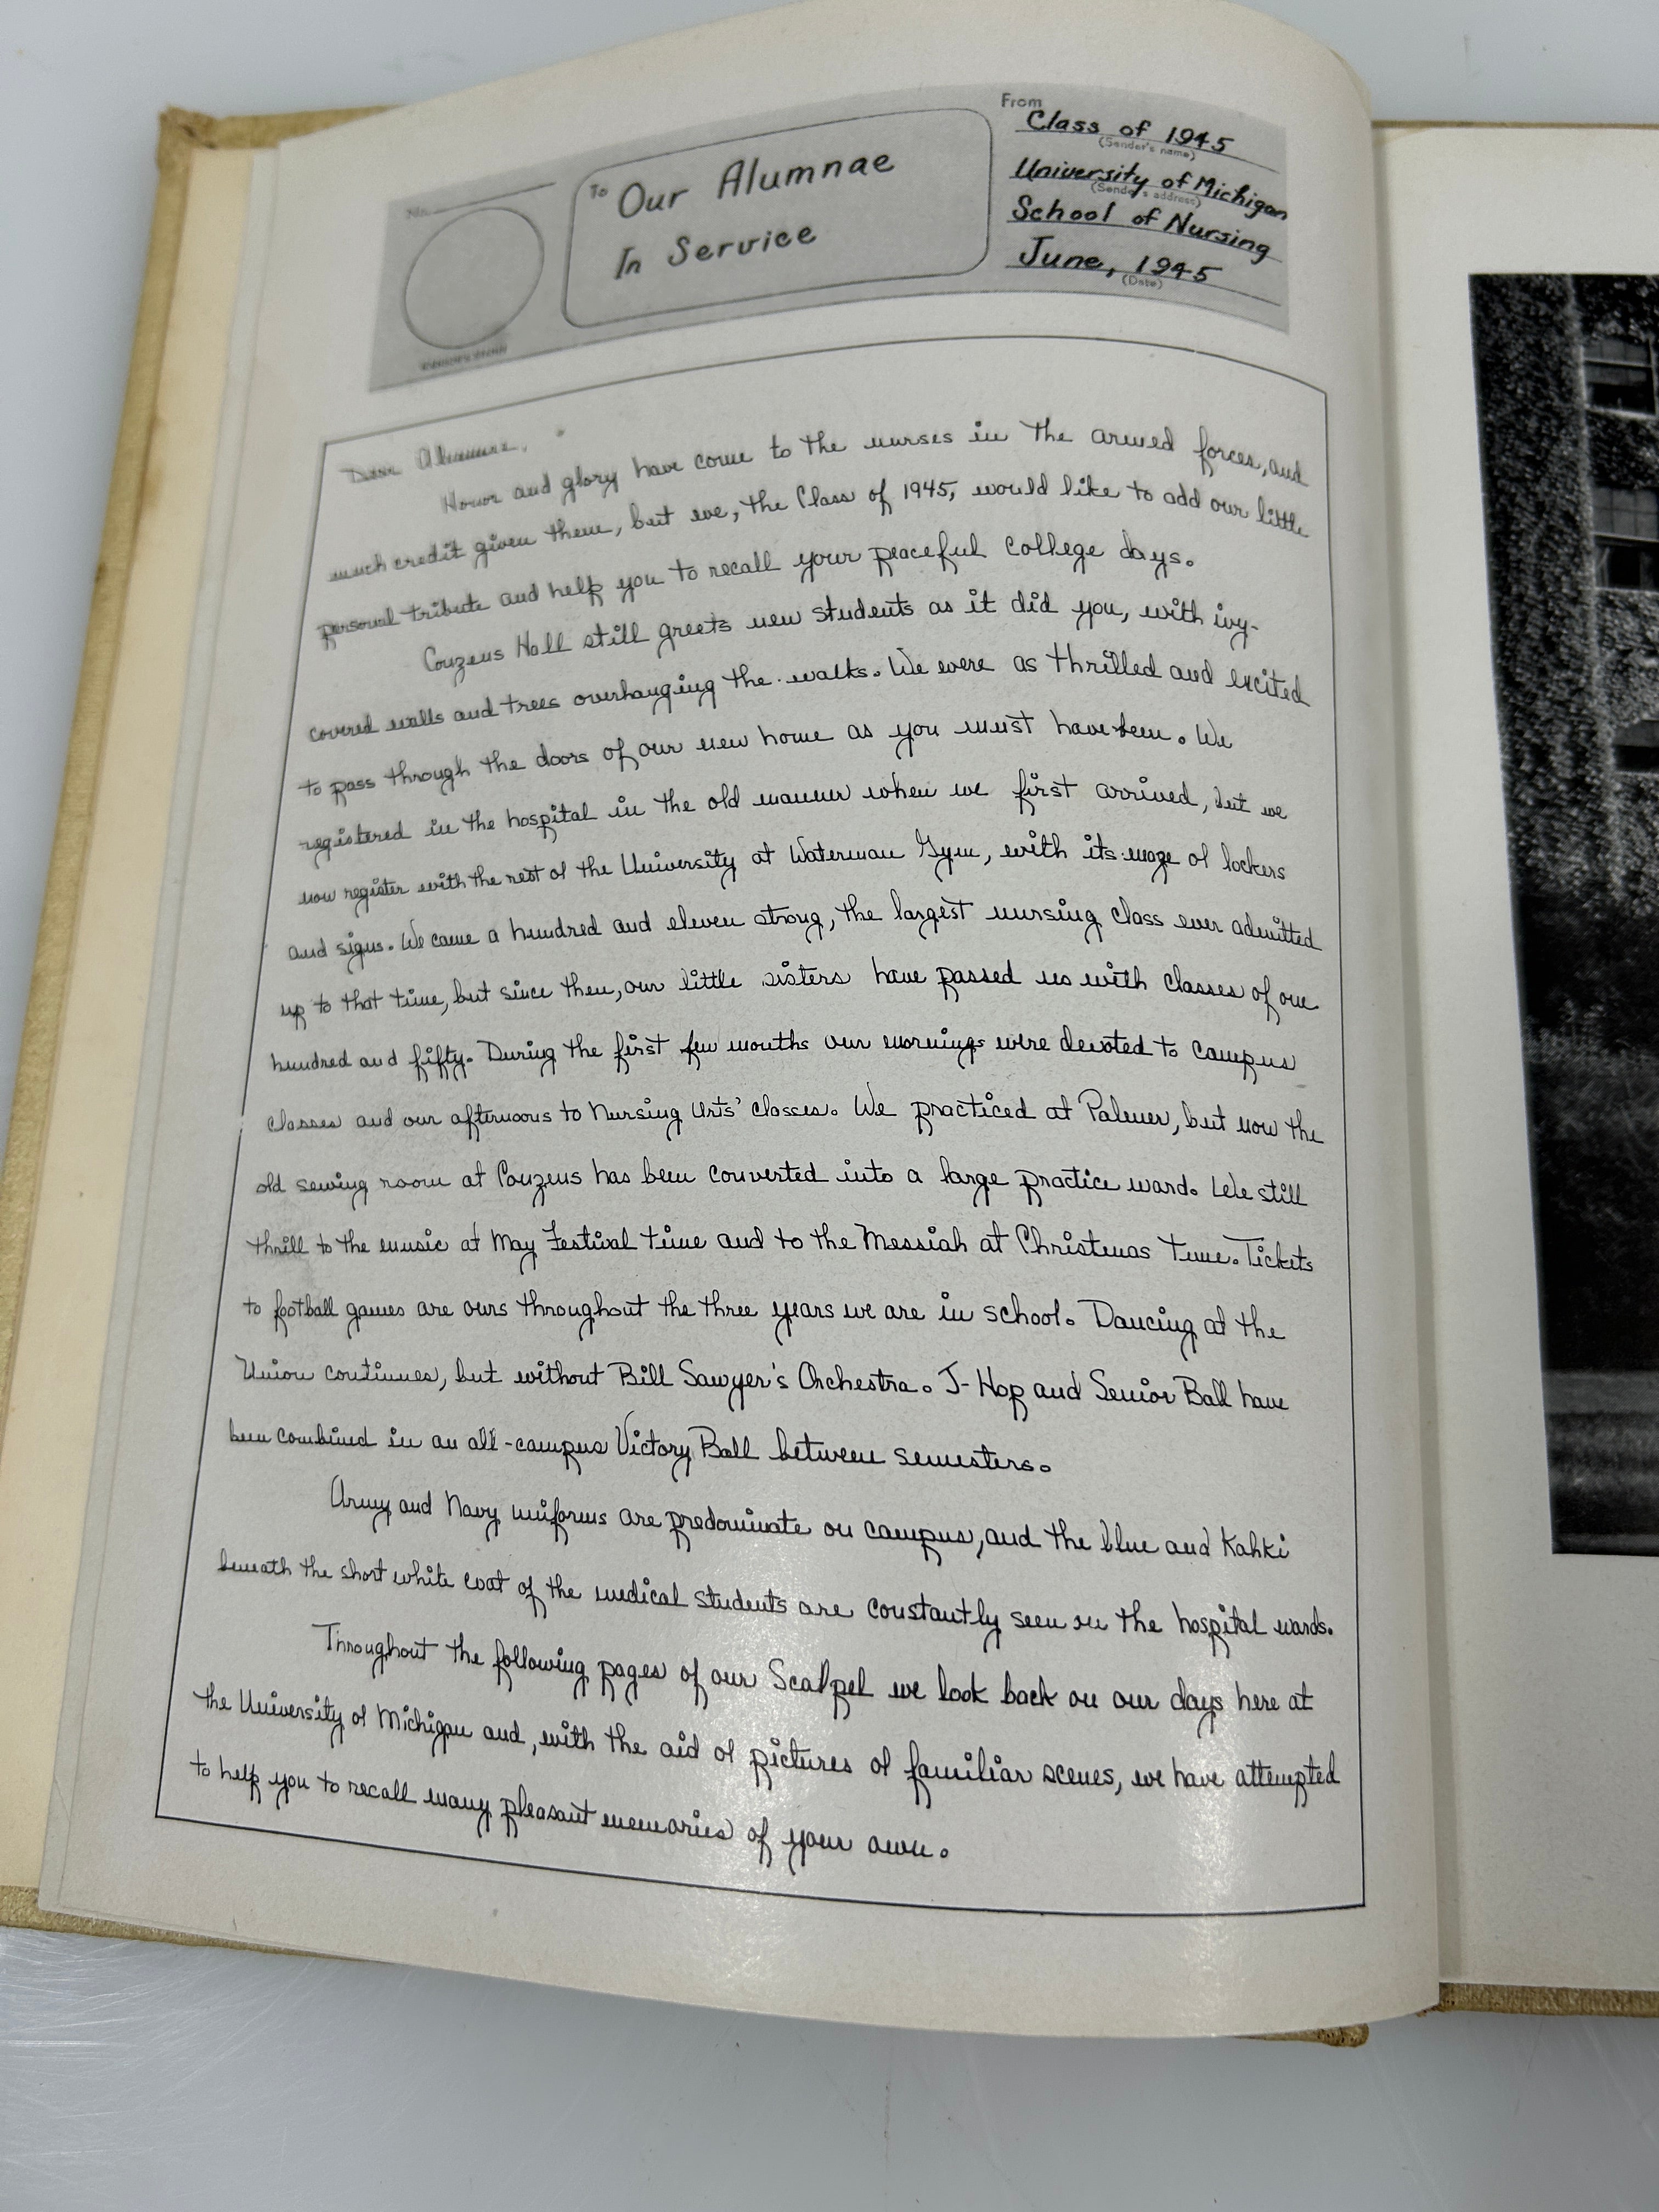 No.
To Our Alumnae
In Service
From
Class of 1945
(Sender's name)
University of Michigan
(Sender's address)
School of Nursing
June, 1945
(Date)
Dear Alumnae,
Honor and glory have come to the nurses in the armed forces, and
much credit given them, but we, the Class of 1945, would like to add our little
personal tribute and help you to recall your peaceful college days.
Couzens Hall still greets new students as it did you, with ivy-
covered walls and trees overhanging the walks. We were as thrilled and excited
to pass through the doors of our new home as you must have been. We
registered in the hospital in the old manner when we first arrived, but we
now register with the rest of the University at Waterman Gym, with its maze of lockers
and signs. We came a hundred and eleven strong, the largest nursing class ever admitted
up to that time, but since then, our little sisters have passed us with classes of one
hundred and fifty. During the first few months our mornings were devoted to campus
classes and our afternoons to Nursing Arts' classes. We practiced at Palmer, but now the
old sewing room at Couzens has been converted into a large practice ward. We still
thrill to the music at May Festival time and to the Messiah at Christmas time. Tickets
to football games are ours throughout the three years we are in school. Dancing at the
Union continues, but without Bill Sawyer's Orchestra. J-Hop and Senior Ball have
been combined in an all-campus Victory Ball between semesters.
Army and Navy uniforms are predominate on campus, and the blue and Kahki
beneath the short white coat of the medical students are constantly seen on the hospital wards.
Throughout the following pages of our Scalpel we look back on our days here at
the University of Michigan and, with the aid of pictures of familiar scenes, we have attempted
to help you to recall many pleasant memories of your own.